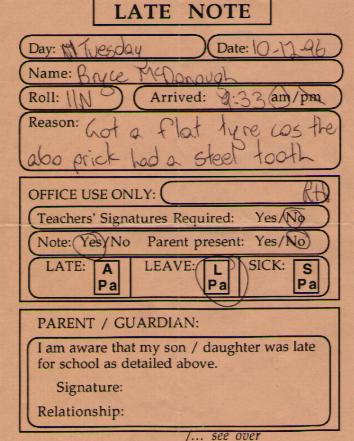 LATE NOTE
Day: Tuesday Date: 10-12-96
Name: Bryce McDonough
Roll: 11N Arrived: 9:33 am/pm
Reason: Got a flat tyre cos the
abo prick had a steel tooth
OFFICE USE ONLY: RH
Teachers' Signatures Required: Yes/No
Note: Yes/No Parent present: Yes/No
LATE: A Pa LEAVE: L Pa SICK: S Pa
PARENT / GUARDIAN:
I am aware that my son / daughter was late
for school as detailed above.
Signature:
Relationship:
/... see over